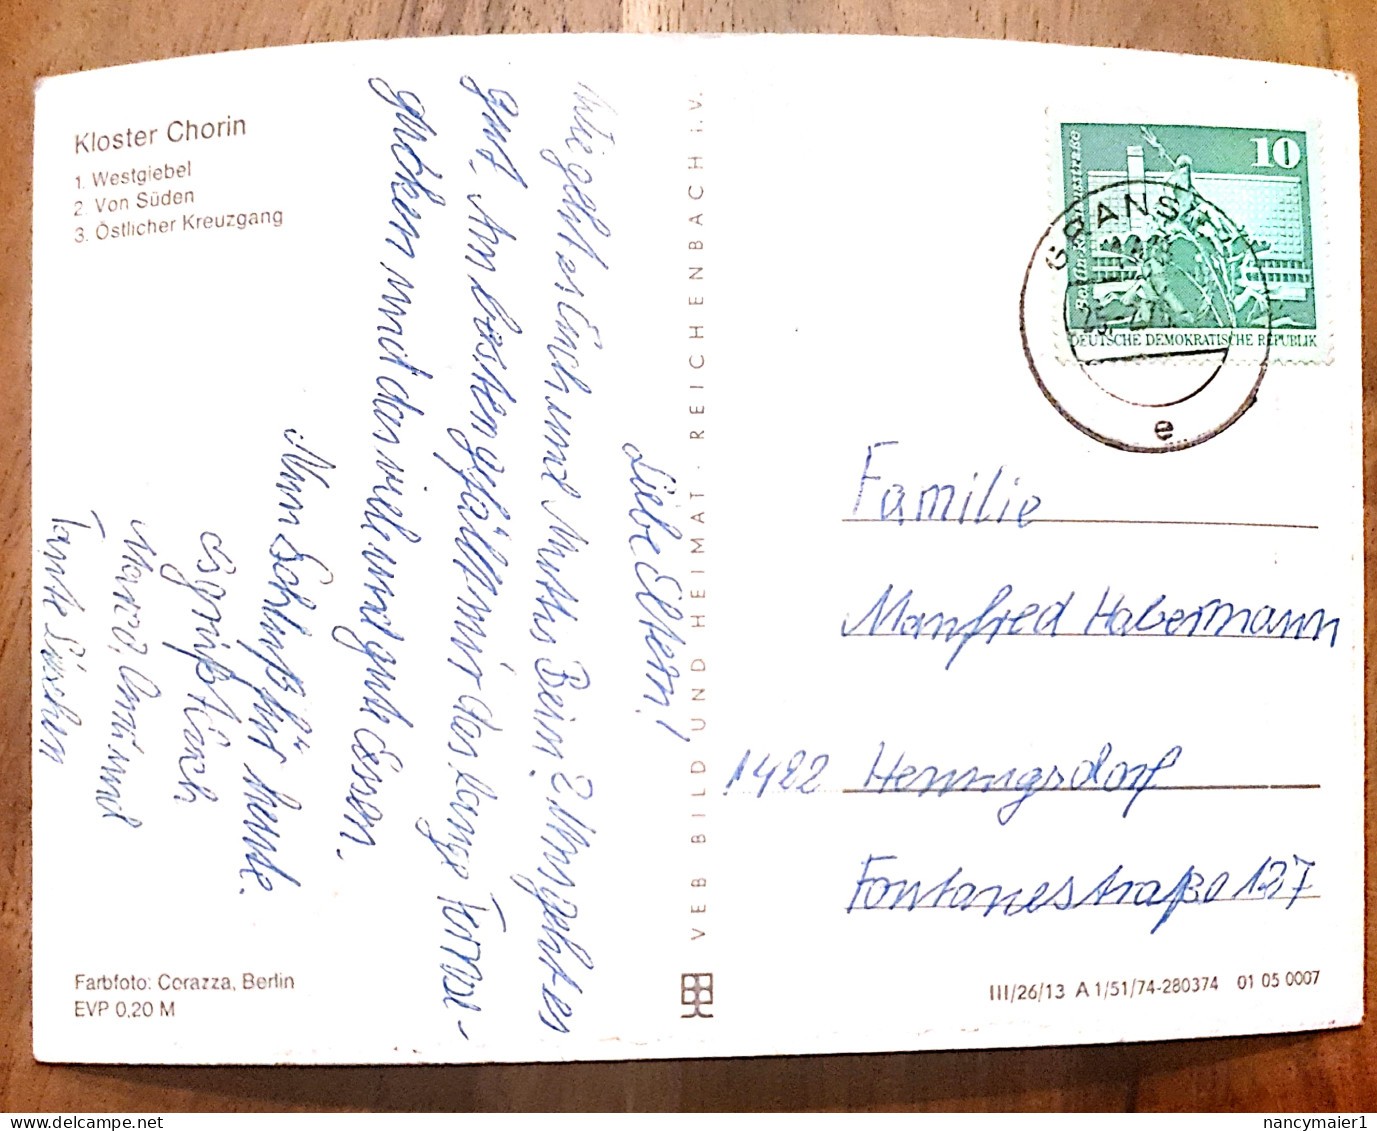 Kloster Chorin
1. Westgiebel
2. Von Süden
3. Östlicher Kreuzgang
Liebe Eltern!
Wie geht es Euch und Muttis Bein? Uns geht es
gut. Am besten gefällt mir das lange
gucken und das viele und gute Essen.
Nun Schluß für heute.
Es grüßt Euch
Marco, und
Tante
Farbfoto: Corazza, Berlin
EVP 0,20 M
VEB BILD UND HEIMAT · REICHENBACH i.V.
10
DEUTSCHE DEMOKRATISCHE REPUBLIK
GRANSEE
e
Familie
Manfred Habermann
1422 Hennigsdorf
Fontanestraße 137
III/26/13 A 1/51/74-280374 01 05 0007
nancymaier1